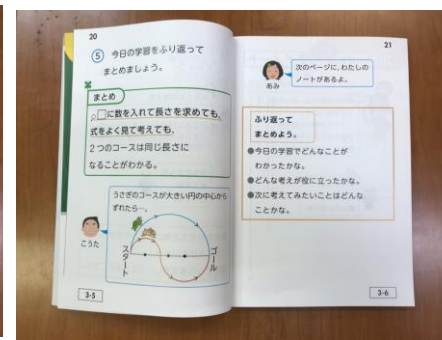 20
⑤ 今日の学習をふり返って
まとめましょう。
まとめ
□に数を入れて長さを求めても、
式をよく見て考えても、
2つのコースは同じ長さに
なることがわかる。
うさぎのコースが大きい円の中心から
ずれたら…。
こうた
スタート
ゴール
3-5
21
次のページに、わたしの
ノートがあるよ。
あみ
ふり返って
まとめよう。
●今日の学習でどんなことが
わかったかな。
●どんな考えが役に立ったかな。
●次に考えてみたいことはどんな
ことかな。
3-6